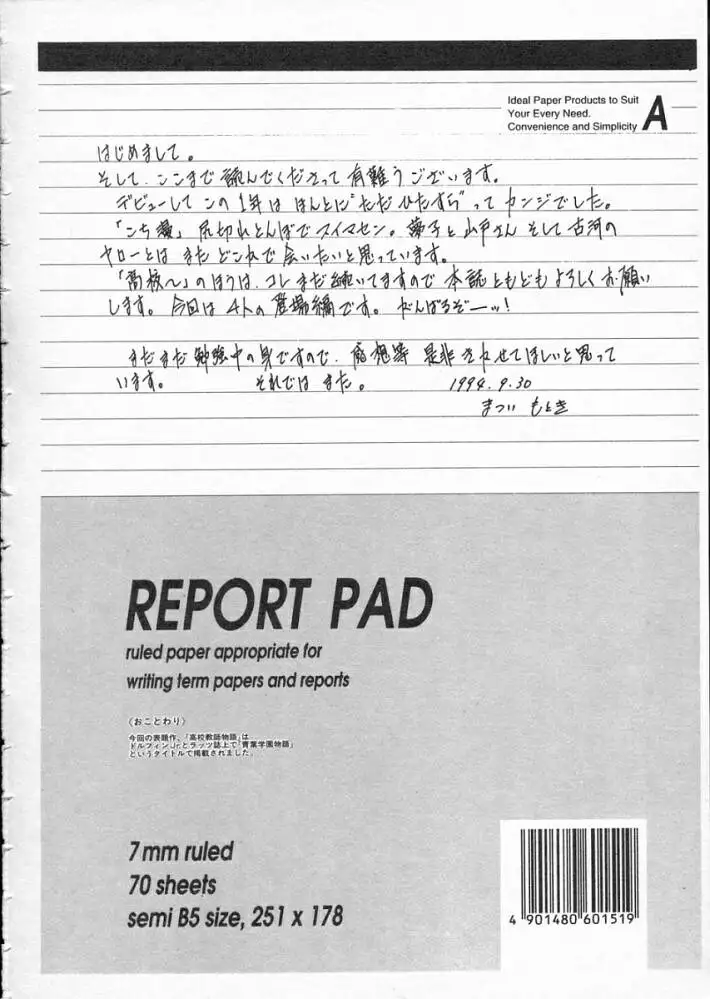 Ideal Paper Products to Suit
Your Every Need.
Convenience and Simplicity
A
はじめまして。
そして、ここまで読んでくださって有難うございます。
デビューしてこの1年はほんとに"ただひたすら"ってカンジでした。
「こち愛」尻切れとんぼでスイマセン。子と山戸さんそして古河の
ヤローとはまたどこかで会いたいと思っています。
「高校〜」のほうは、コレまだ続いてますので本誌ともどもよろしくお願い
します。今回は4人の登場編です。がんばるぞーッ!
まだまだ勉強中の身ですので、感想等是非きかせてほしいと思って
います。 それではまた。 1994.9.30
まつい もとき
REPORT PAD
ruled paper appropriate for
writing term papers and reports
〈おことわり〉
今回の表題作、「高校教師物語」は…
ドルフィンJr.とラッツ誌上で「青葉学園物語」
というタイトルで掲載されました。
7mm ruled
70 sheets
semi B5 size, 251 x 178
4 901480 601519